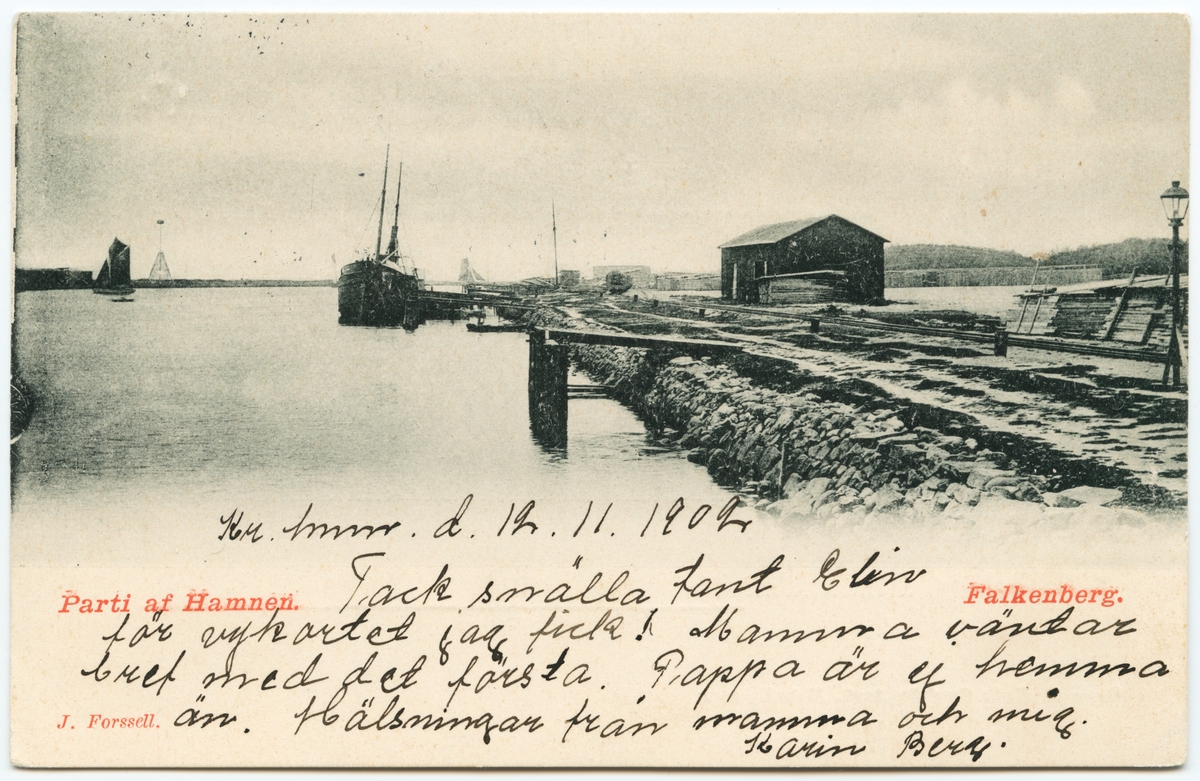 Kr. hmn. d. 12. 11. 1902
Tack snälla tant Elin
Parti af Hamnen.
Falkenberg.
för vykortet jag fick! Mamma väntar
bref med det första. Pappa är ej hemma
J. Forssell.
än. Hälsningar från mamma och mig.
Karin Berg.